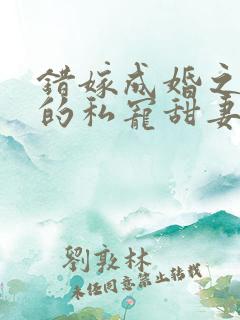 错嫁成婚之
的私宠甜妻
劉敦林
未经同意禁止转载